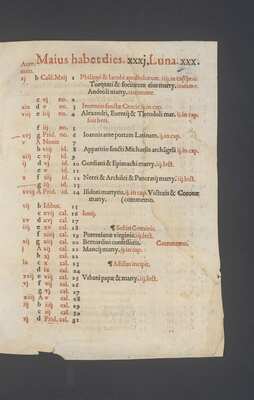 Maius habet dies. xxxj. Luna. xxx.
Aure. num.
xj b Cale. Maij 1 Philippi & Iacobi apostolorum. iij. in cap.
Torquati & sociorum eius marty.
Andeoli marty.
c vj no. 2
xix d v no. 3 Inventio sancte Crucis. ij. in cap.
viij e iiij no. 4 Alexandri, Euentij & Theodoli mar. ij. in cap.
f iij no. 5
xvj g Prid. no. 6 Ioannis ante portam Latinam. ij. in cap.
v A Nonas 7
b viij id. 8 Apparitio sancti Michaelis archāgeli ij. in cap.
xiij c vij id. 9
ij d vj id. 10 Gordiani & Epimachi marty. iij. lect.
e v id. 11
x f iiij id. 12 Nerei & Archilei & Pancratij marty. iij. lect.
g iij id. 13
xviij A Prid. id. 14 Isidori martyris. ij. in cap. Victoris & Corone
marty. Commemo.
vij b Idibus 15
c xvij cal. 16 Iunij.
xv d xvj cal. 17
iiij e xv cal. 18 ¶ Solis Geminis.
f xiiij cal. 19 Potentiane virginis. iij. lect.
xij g xiij cal. 20 Bernardini confessoris. Commemo.
j A xij cal. 21 Mancij marty. ij. in cap.
b xj cal. 22
ix c x cal. 23 ¶ Aestas incipit.
d ix cal. 24
xvij e viij cal. 25 Vrbani papæ & marty. iij. lect.
vj f vij cal. 26
g vj cal. 27
xiiij A v cal. 28
iij b iiij cal. 29
c iij cal. 30
xj d Prid. cal. 31